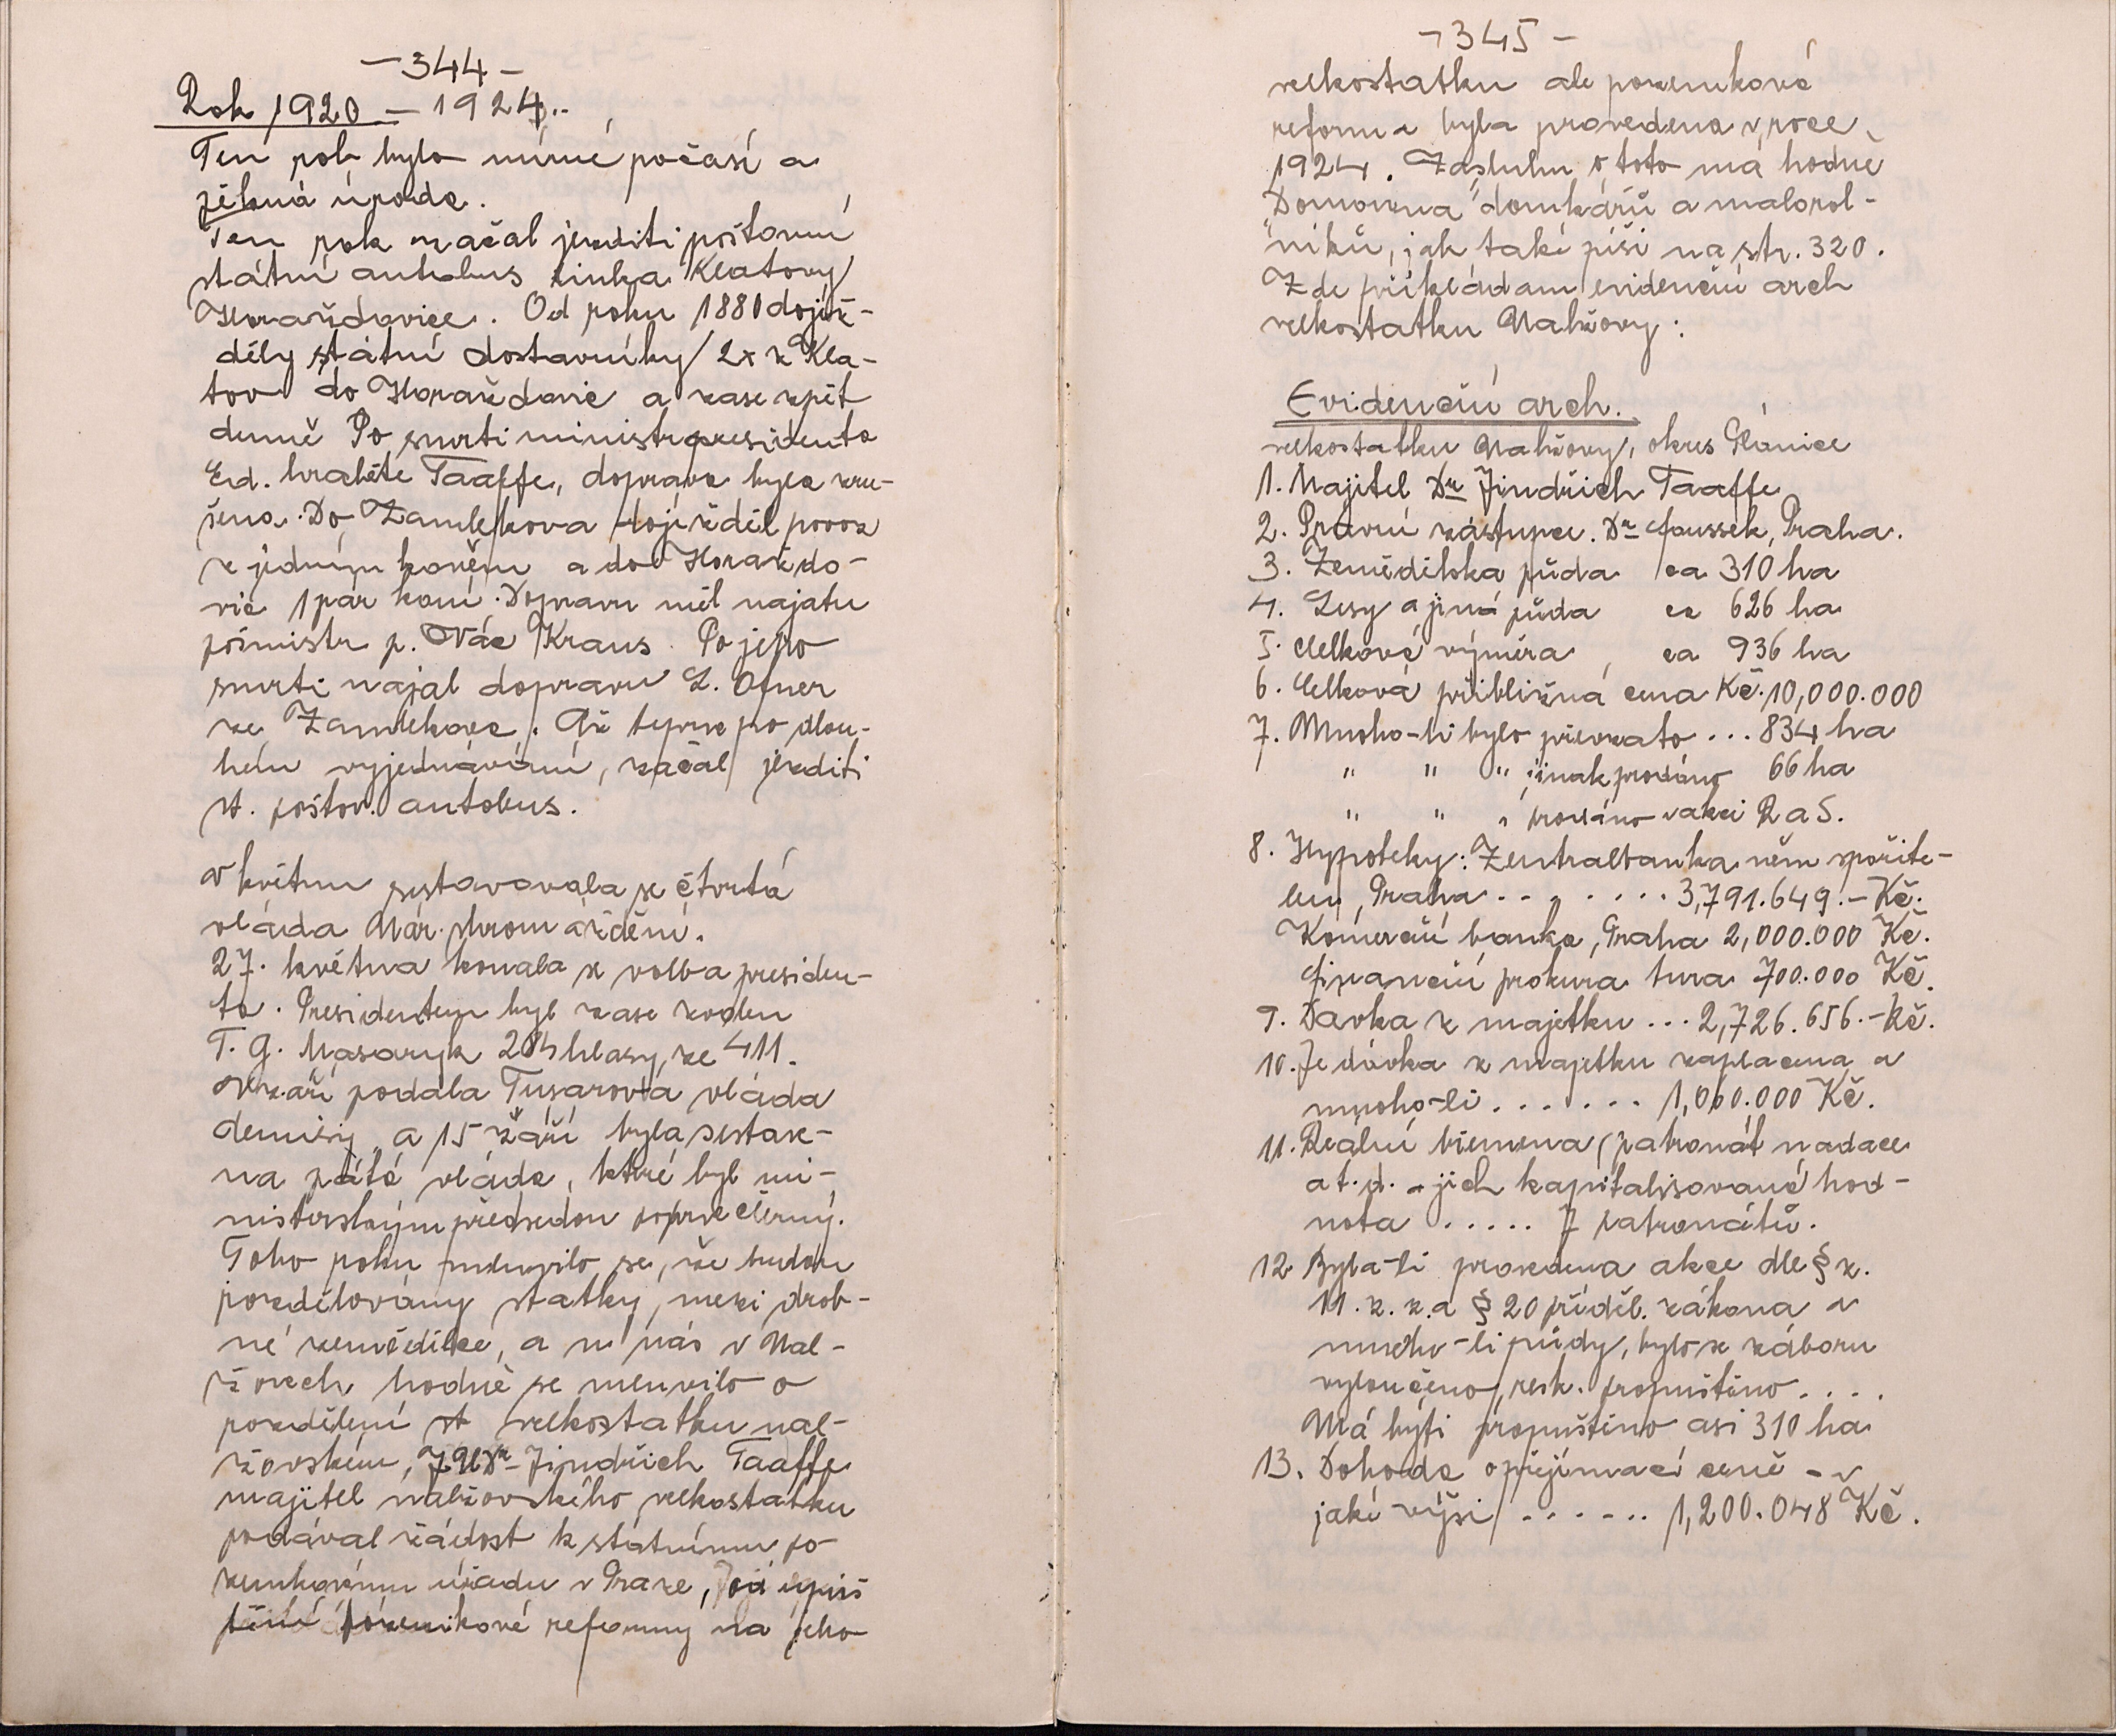 -344-
Rok 1920 - 1924.
Ten rok bylo mírné počasí a
pěkná úroda.
Ten rok začal jezditi poštovní
státní autobus linka Klatovy
Horažďovice. Od roku 1880 dojíž-
děly státní dostavníky 2x z Kla-
tov do Horažďovic a zase zpět
denně Po smrti ministrpresidenta
Ed. hraběte Taaffe, doprava byla zru-
šena. Do Zamlekova dojížděl povoz
z jedním koněm a do Horažďo-
vic 1 pár koní. Dopravu měl najatu
pošmistr p. Vác Kraus. Po jeho
smrti najal dopravu L. Ofner
ze Zamlekova. Až teprve po dlou-
hém vyjednávání, začal jezditi
st. poštov. autobus.
V květnu sestavovala se čtvrtá
vláda Nár. shromáždění.
27. května konala se volba presiden-
ta. Presidentem byl zase zvolen
T. G. Masaryk 284 hlasy, ze 411.
V září podala Tusarova vláda
demisi, a 15 září byla sestave-
na pátá vláda, které byl mi-
nisterským předsedou poprve Černý.
Toho roku mluvilo se, že budou
rozdělovány statky, mezi drob-
né zemědělce, a u nás v Nal-
žovech hodně se mluvilo o
rozdělení st velkostatku nal-
žovském, JUDr Jindřich Taaffe
majitel nalžovského velkostatku
podával žádost k státnímu po-
zemkovému úřadu v Praze,
pozemkové reformy na jeho
-345-
velkostatku ale pozemková
reforma byla provedena v roce
1924. Zásluhu o toto má hodně
Domovina "domkářů a malorol-
"níků, jak také píši na str. 320.
Zde přikládám evidenční arch
velkostatku Nalžovy:
Evidenční arch.
velkostatku Nalžovy, okres Plánice
1. Majitel Dr Jindřich Taaffe
2. Právní zástupce. Dr Foussek, Praha.
3. Zemědělská půda ca 310 ha
4. Lesy a jiná půda ca 626 ha
5. Celková výměra ca 936 ha
6. Celková přibližná cena Kč. 10,000.000
7. Mnoho-li bylo převzato ... 834 ha
" " " jinak prodáno 66 ha
" " " prodáno v akci R a S.
8. Hypoteky: Zentralbanka něm spořite-
len, Praha ........ 3,791.649.- Kč.
Komerční banka, Praha 2,000.000 Kč.
Finanční prokura tura 700.000 Kč.
9. Dávka z majetku ... 2,726.656.- Kč.
10. Je dávka z majetku zaplacena a
mnoho-li ....... 1,000.000 Kč.
11. Reální břemena (patronát nadace
a t. d. - jich kapitalisovaná hod-
nota ..... 7 patronátů.
12. Byla-li provedena akce dle § z.
11. z. z. a § 20 příděl. zákona a
mnoho-li půdy, bylo z záboru
vyloučeno, resk. propuštěno ....
Má býti propuštěno asi 310 ha
13. Dohoda o přejímací ceně - v
jaké výši ...... 1,200.048 Kč.